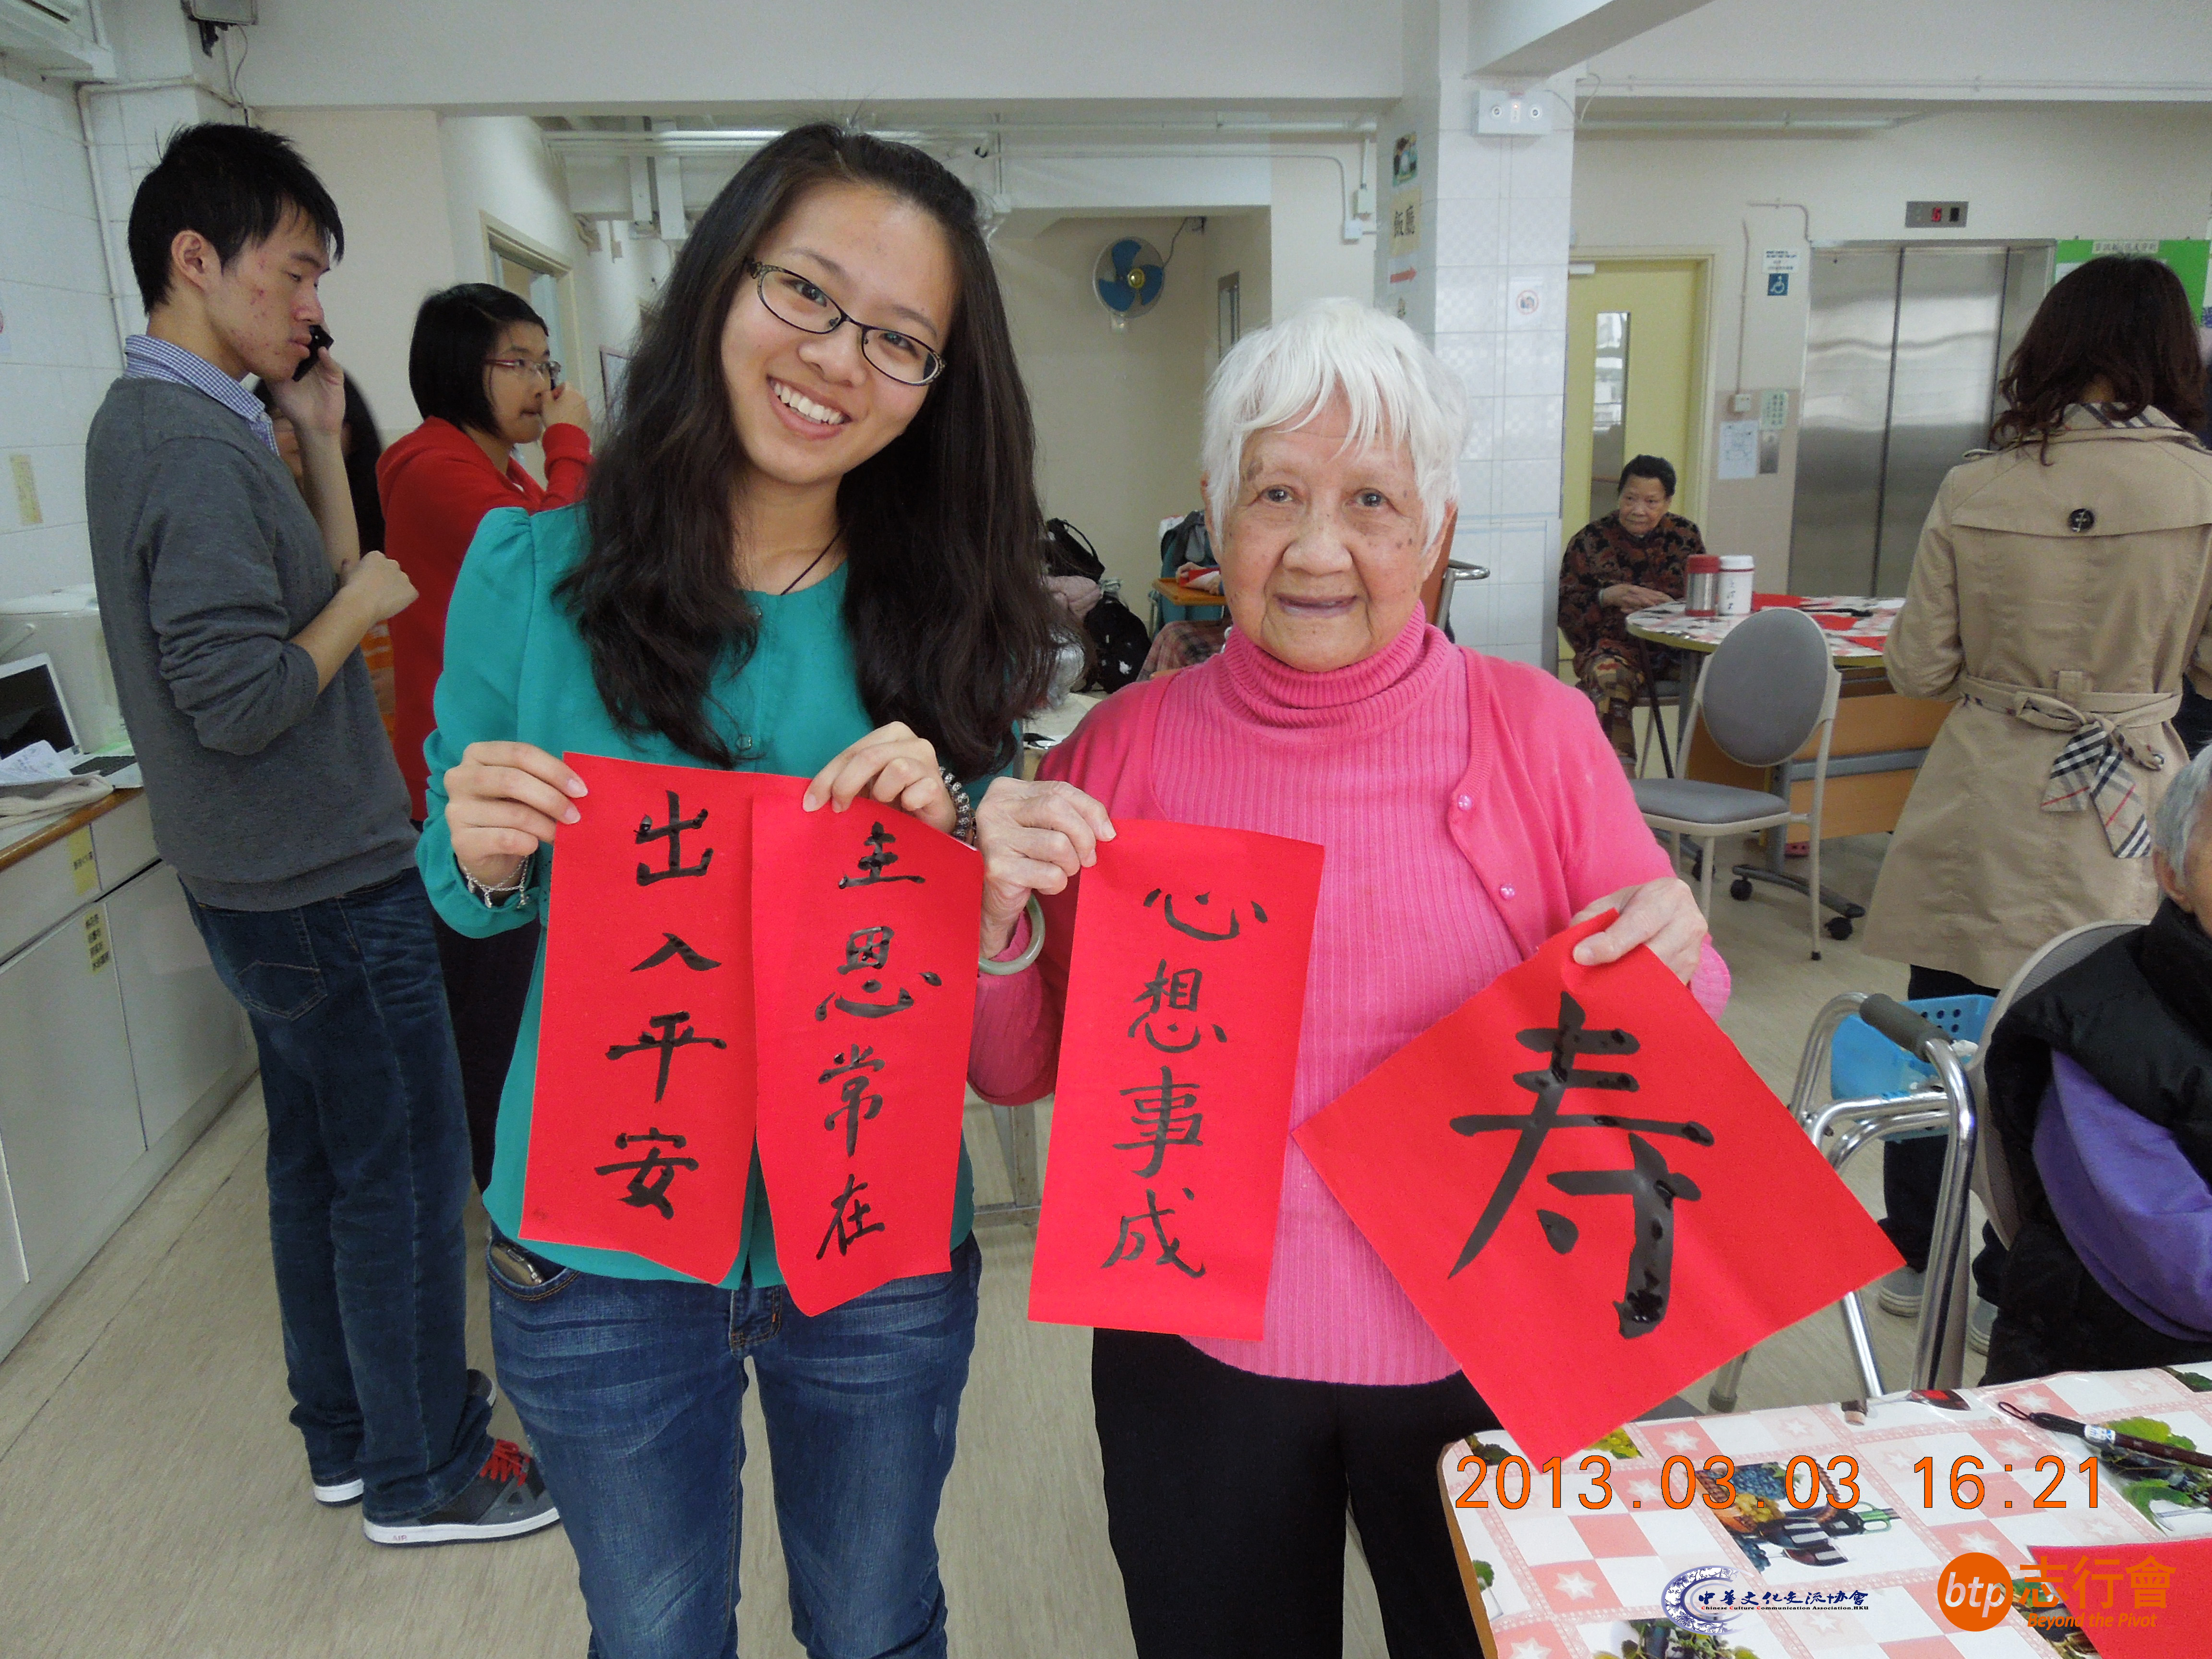 飯廳
出入平安
主恩常在
心想事成
寿
2013.03.03 16:21
中華文化交流協會
Chinese Culture Communication Association.HKU
btp志行會
Beyond the Pivot